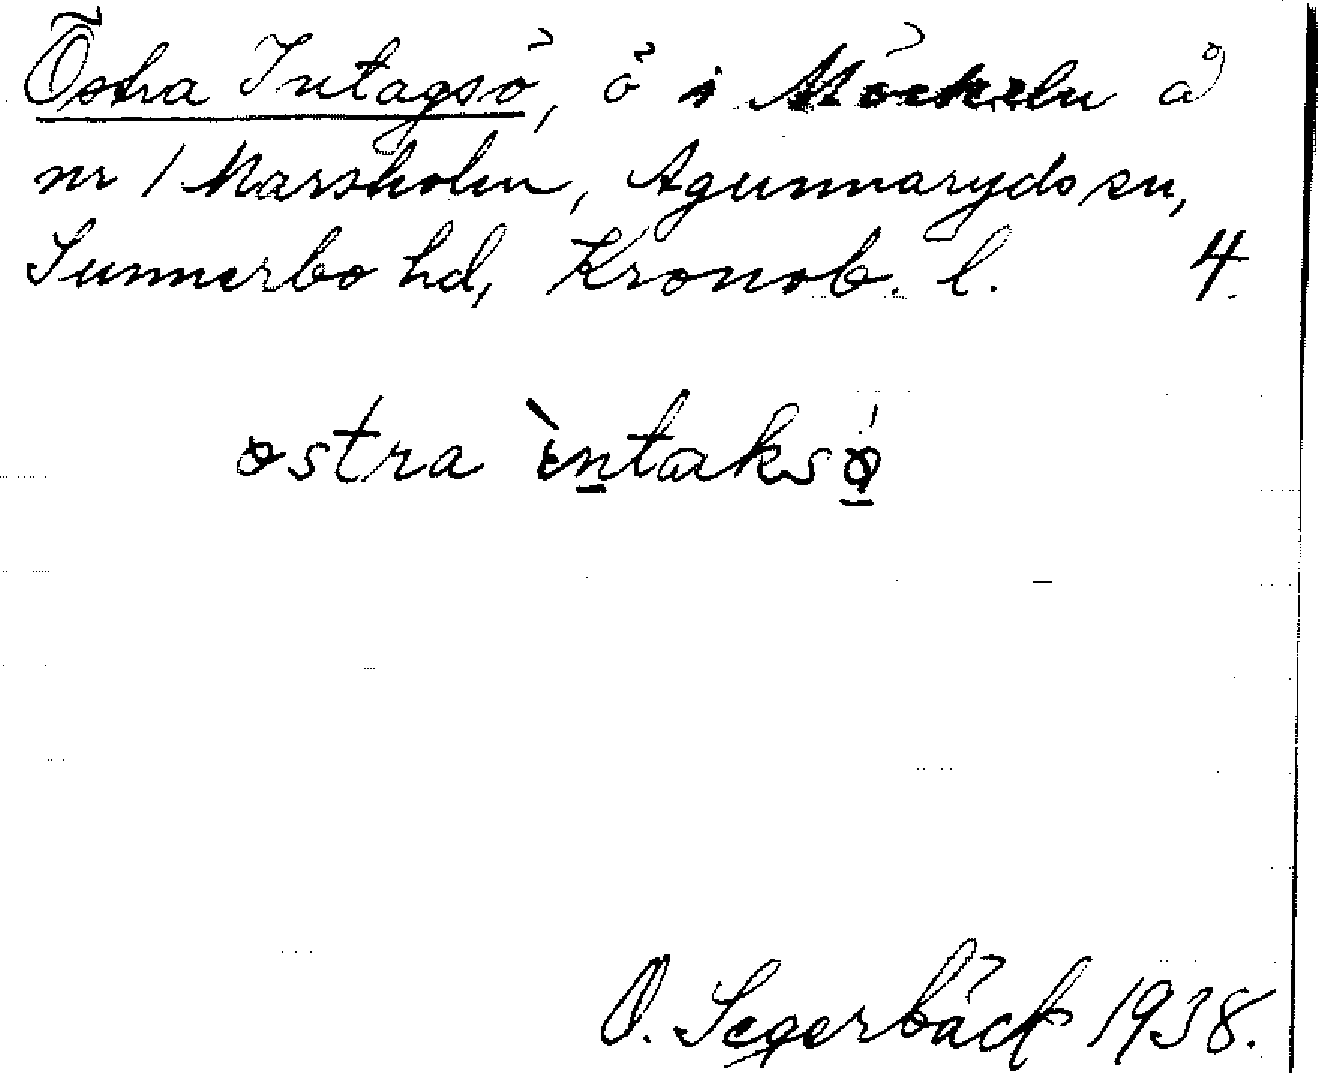 Östra Intagsö, ö i Möckeln å
nr 1 Marsholm, Agunnaryds sn,
Sunnerbo hd, Kronob. l. 4.
ostra ìntaksø
O. Segerbäck 1938.